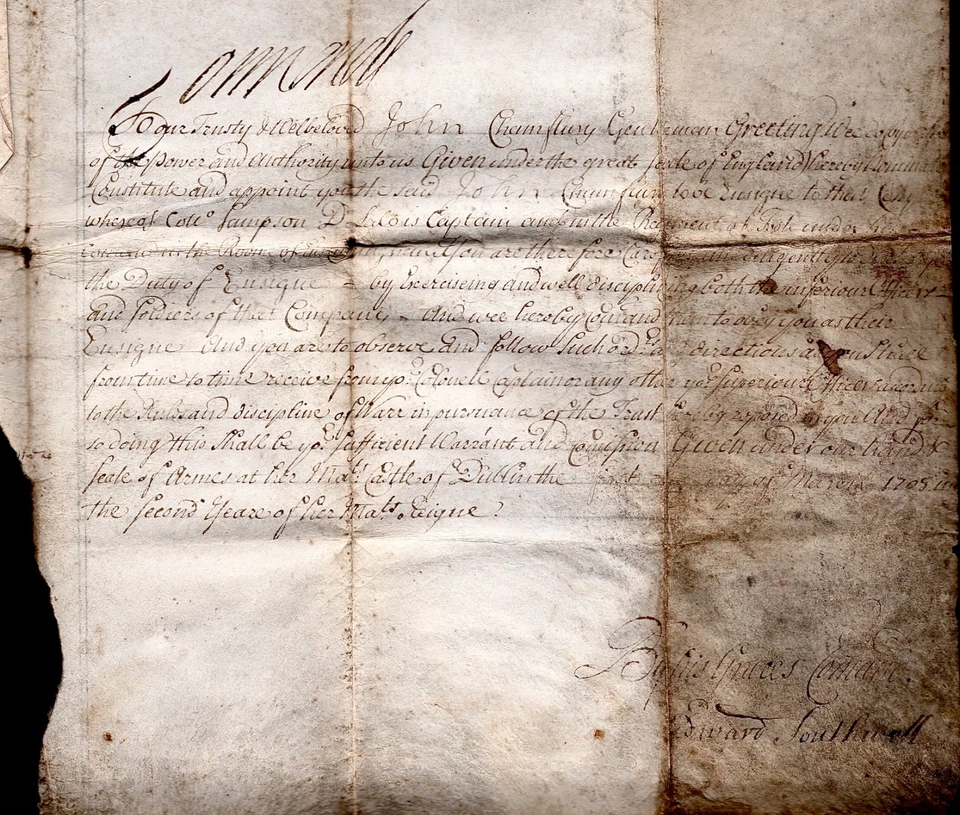 Ormonde
To our Trusty & Welbeloved John Chamflury Gentleman Greeting Wee
of the power and Authority unto us Given under the great seale of England hereby
Constitute and appoint you the said John to be Ensigne to that Comp
whereof Coll.º Sampson Captain and in the Regiment of Foot under
comand in the Roome of You are therefore the
the Duty of Ensigne by Exercising and well disciplining both the inferiour Officers
and Soldiers of that Company And wee hereby Comand them to obey you as their
Ensigne And you are to observe and follow such directions as you shall
from time to time receive from yo.r Colonell Captain or any other yo.r superiour Officer according
to the Rules and discipline of Warr in pursuance of the Trust hereby reposed in you And for
so doing this shall be yo.r sufficient Warrant and comission Given under our hand &
seale of Armes at her Ma.ts Castle of Dublin the first day of March 1703 in
the second Yeare of her Ma.ts Reigne
By his Graces Comand
Edward Southwell